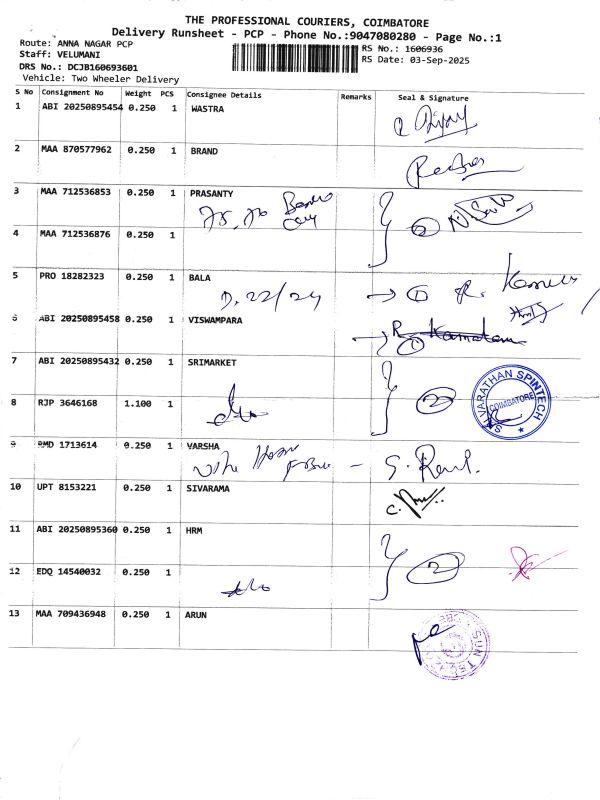 THE PROFESSIONAL COURIERS, COIMBATORE
Delivery Runsheet - PCP - Phone No.:9047080280 - Page No.:1
Route: ANNA NAGAR PCP
Staff: VELUMANI
DRS No.: DCJB160693601
Vehicle: Two Wheeler Delivery
RS No.: 1606936
RS Date: 03-Sep-2025
S No Consignment No Weight PCS Consignee Details Remarks Seal & Signature
1 ABI 20250895454 0.250 1 WASTRA
2 MAA 870577962 0.250 1 BRAND
3 MAA 712536853 0.250 1 PRASANTY
2
4 MAA 712536876 0.250 1
5 PRO 18282323 0.250 1 BALA
D. 22/24 → 1 R.
6 ABI 20250895458 0.250 1 VISWAMPARA
7 ABI 20250895432 0.250 1 SRIMARKET
2
SELVARATHAN SPINTECH COIMBATORE
8 RJP 3646168 1.100 1
9 RMD 1713614 0.250 1 VARSHA
10 UPT 8153221 0.250 1 SIVARAMA
11 ABI 20250895360 0.250 1 HRM
2
12 EDQ 14540032 0.250 1
13 MAA 709436948 0.250 1 ARUN
SUN